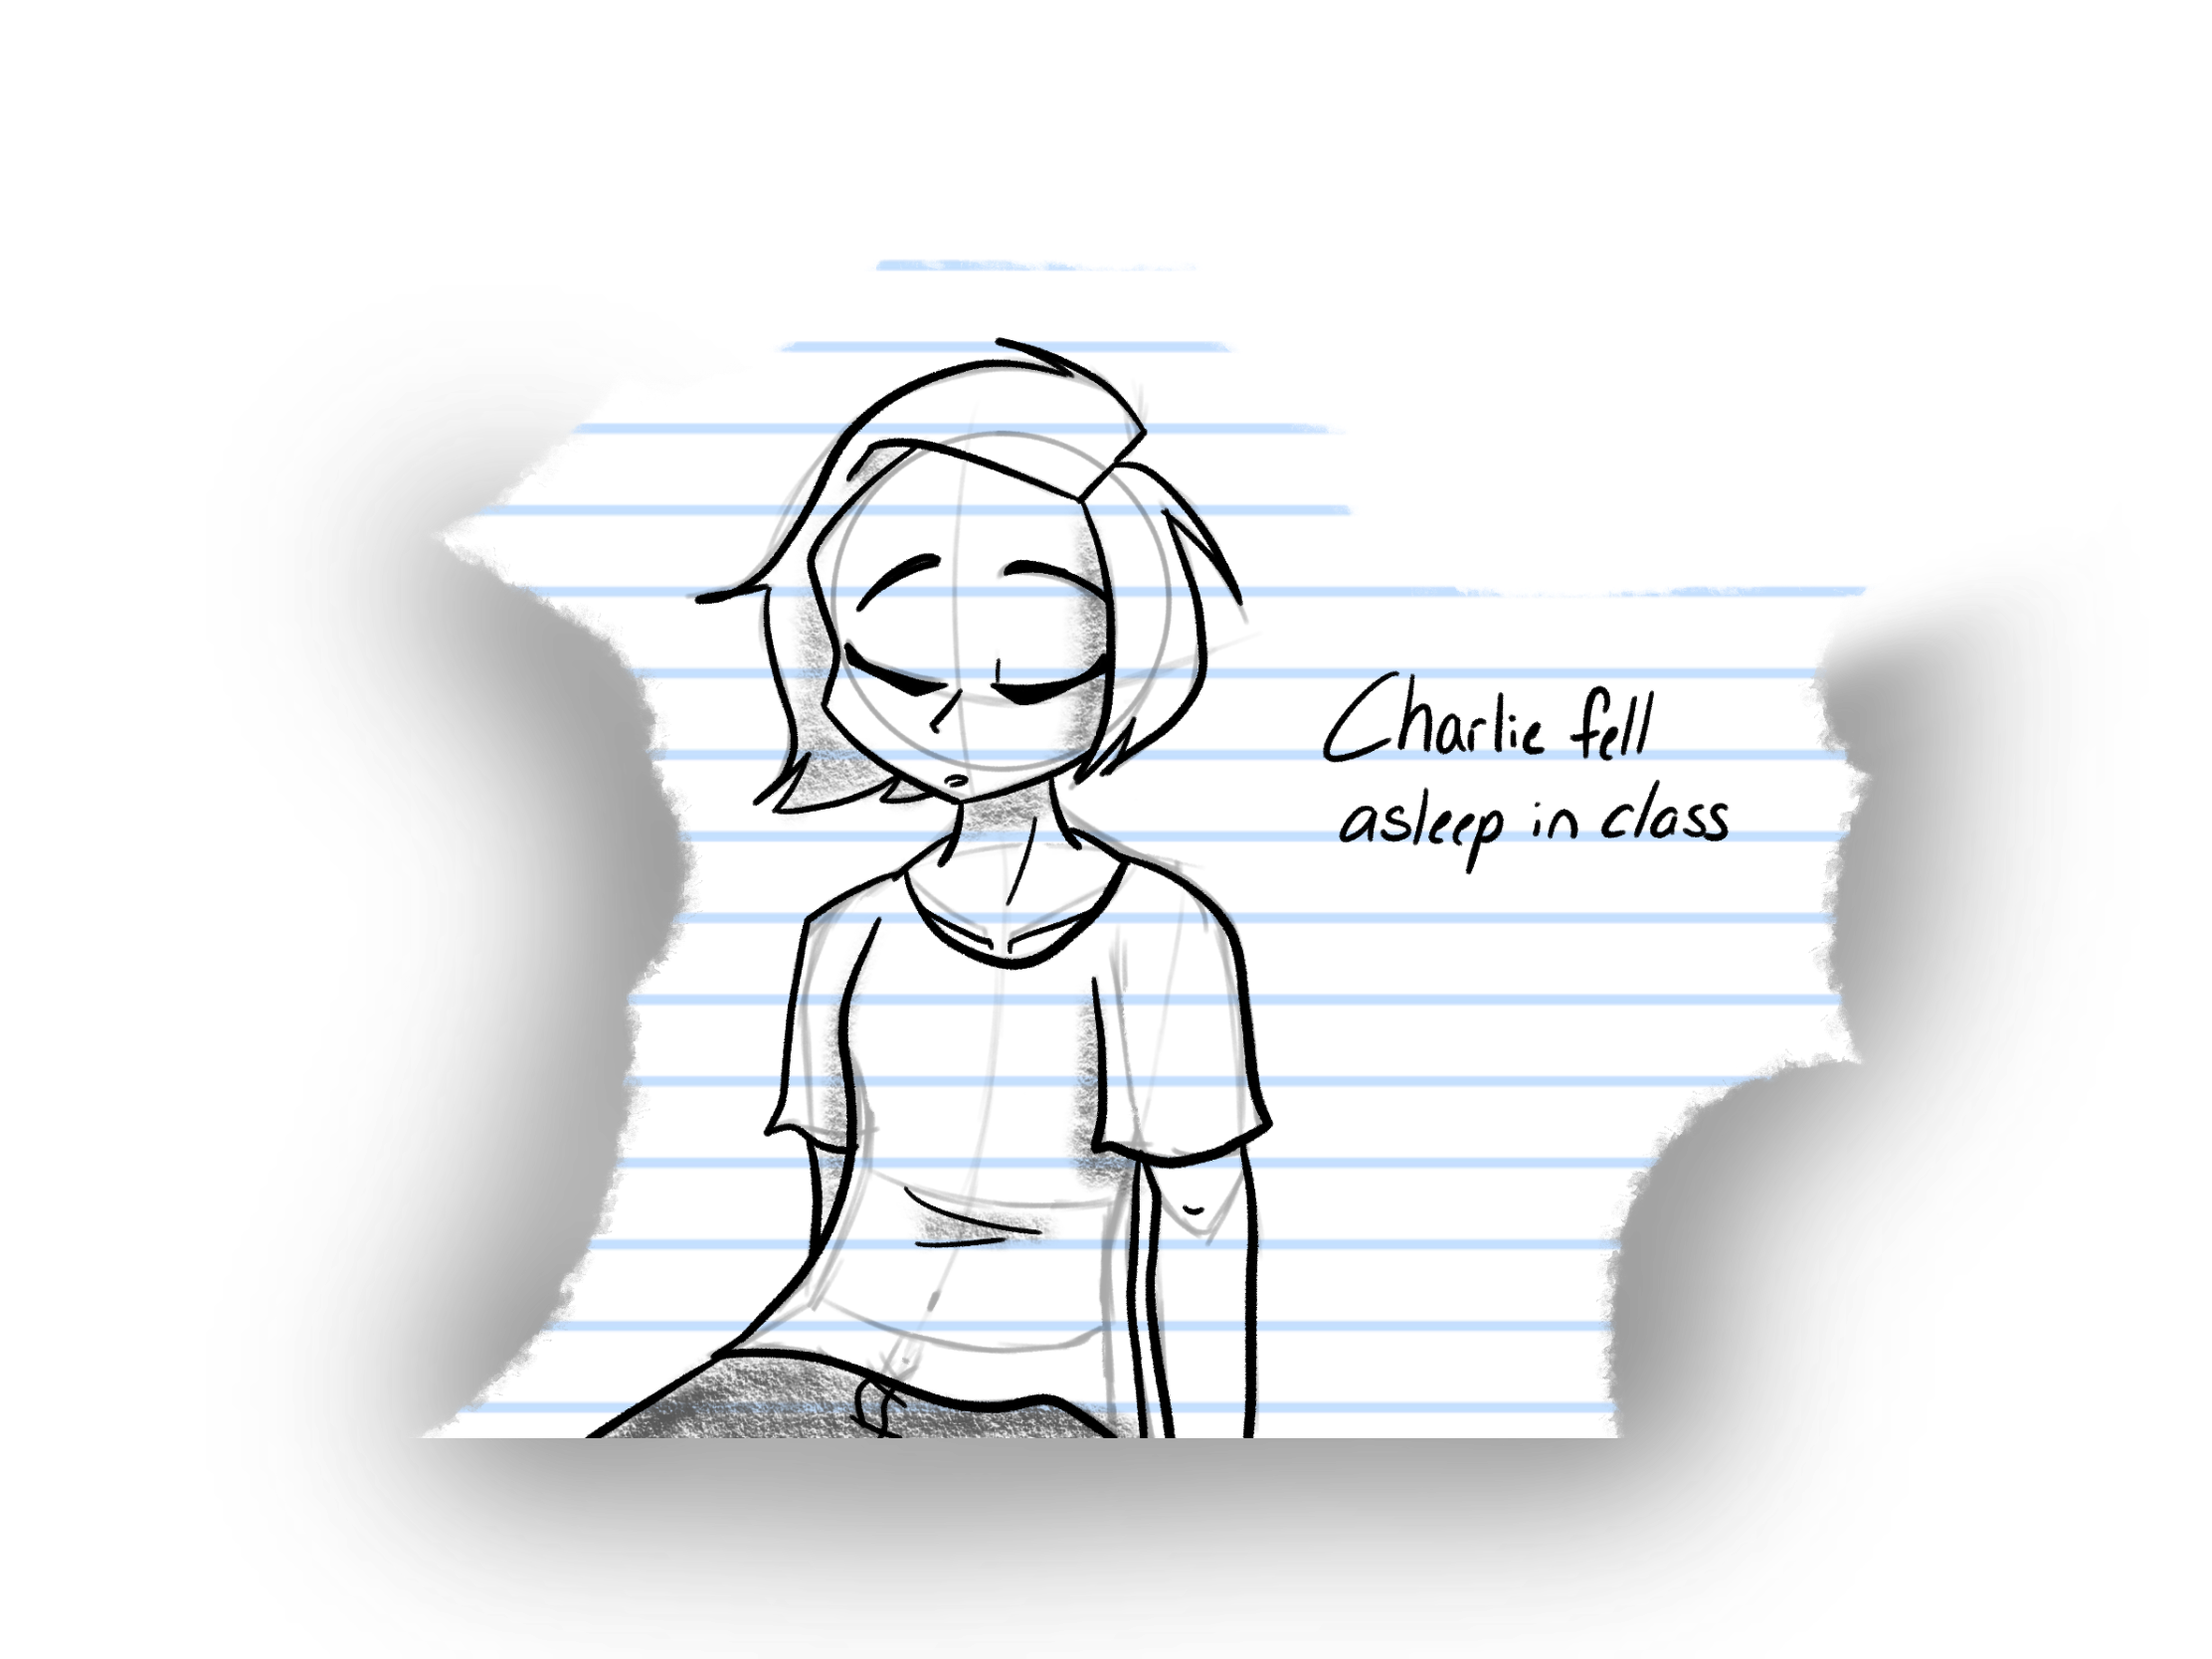 Charlie fell
asleep in class